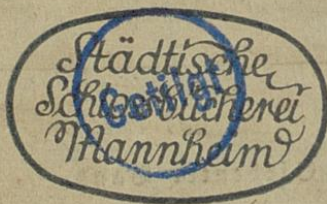 Städtische
Schlossbücherei
Mannheim
Getilgt